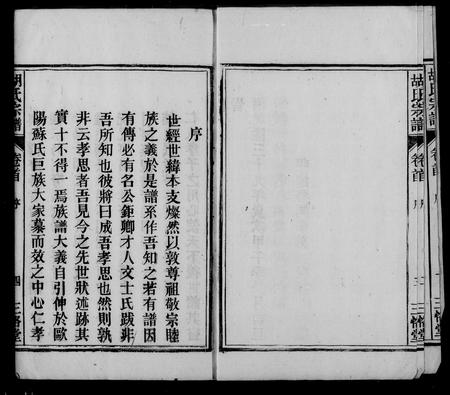 胡氏宗譜
卷首
序
三
三
序
世經世緯本支燦然以敦尊祖敬宗睦
族之義於是譜系作吾知之若有譜因
有傳必有名公鉅卿才人文士氏跋非
吾所知也彼將曰成吾孝思也然則孰
非云孝思者吾見今之先世狀述跡其
實十不得一焉族譜大義自引伸於歐
陽蘇氏巨族大家摹而效之中心仁孝
胡氏宗譜
卷首
序
四
三
堂